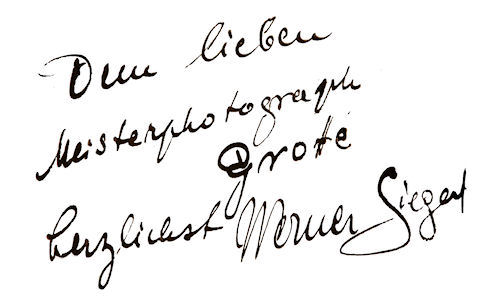 Dem lieben
Meisterphotograph
Grotte
herzlichst Werner Siegert